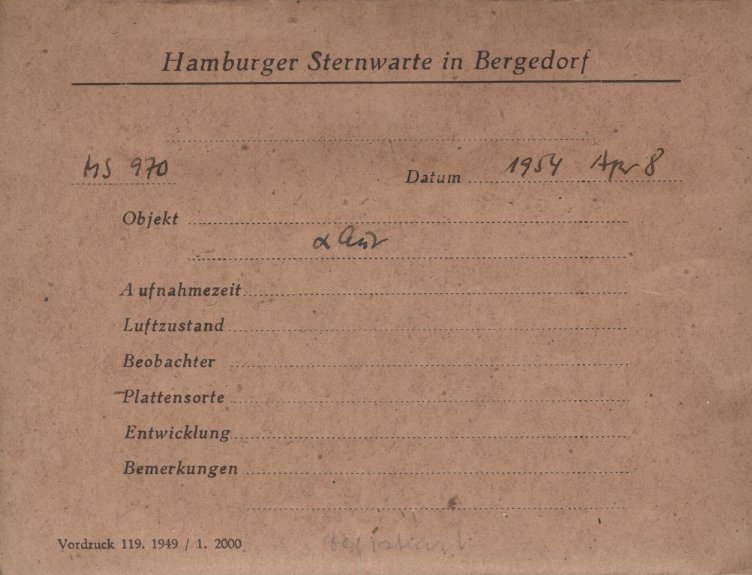 Hamburger Sternwarte in Bergedorf
MS 970 Datum 1954 Apr 8
Objekt
α Aur
Aufnahmezeit
Luftzustand
Beobachter
Plattensorte
Entwicklung
Bemerkungen
Vordruck 119. 1949 / 1. 2000